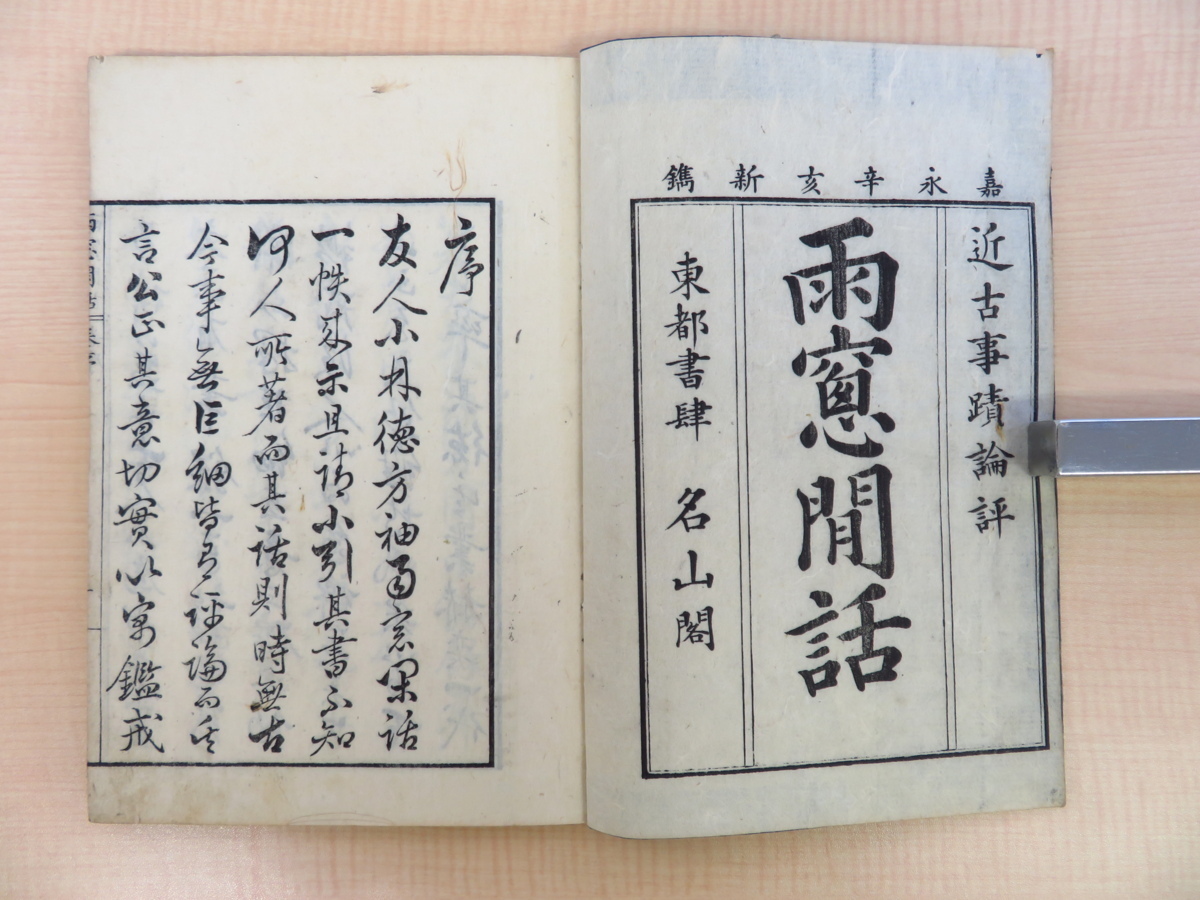 嘉永辛亥新鐫
近古事蹟論評
雨窻閒話
東都書肆　名山閣
序
友人小林德方袖雨窓閑話
一帙来示且請小引其書不知
何人所著而其話則時無古
今事無巨細皆有評論而其
言公正其意切實以寓鑑戒